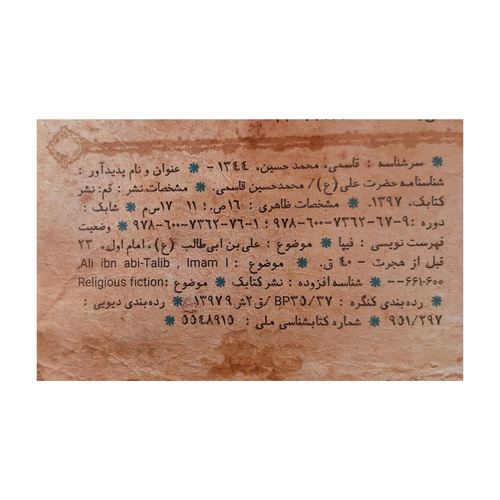 ✷ سرشناسه : قاسمی، محمد حسین، ۱۳۴۴ - ✷ عنوان و نام پدیدآور :
شناسنامه حضرت علی (ع) / محمدحسین قاسمی. ✷ مشخصات نشر : قم: نشر
کتابک، ۱۳۹۷. ✷ مشخصات ظاهری : ۱۶ص.؛ ۱۱ ۱۷س‌م ✷ شابک :
دوره :۹-۶۷-۷۳۶۲-۶۰۰-۹۷۸ ؛ ۱-۷۶-۷۳۶۲-۶۰۰-۹۷۸ ✷ وضعیت
فهرست نویسی : فیپا ✷ موضوع : علی‌بن ابی‌طالب (ع)، امام اول، ۲۳
قبل از هجرت - ۴۰ ق. ✷ موضوع : Ali ibn abi-Talib , Imam I,
۶۰۰-۶۶۱-- ✷ شناسه افزوده : نشر کتابک ✷ موضوع :Religious fiction
✷ رده‌بندی کنگره : BP۳۵/۳۷ /ق۲ش۹ ۱۳۹۷ ✷ رده‌بندی دیویی :
۹۵۱/۲۹۷ ✷ شماره کتابشناسی ملی : ۵۵۴۸۹۱۵ ✷